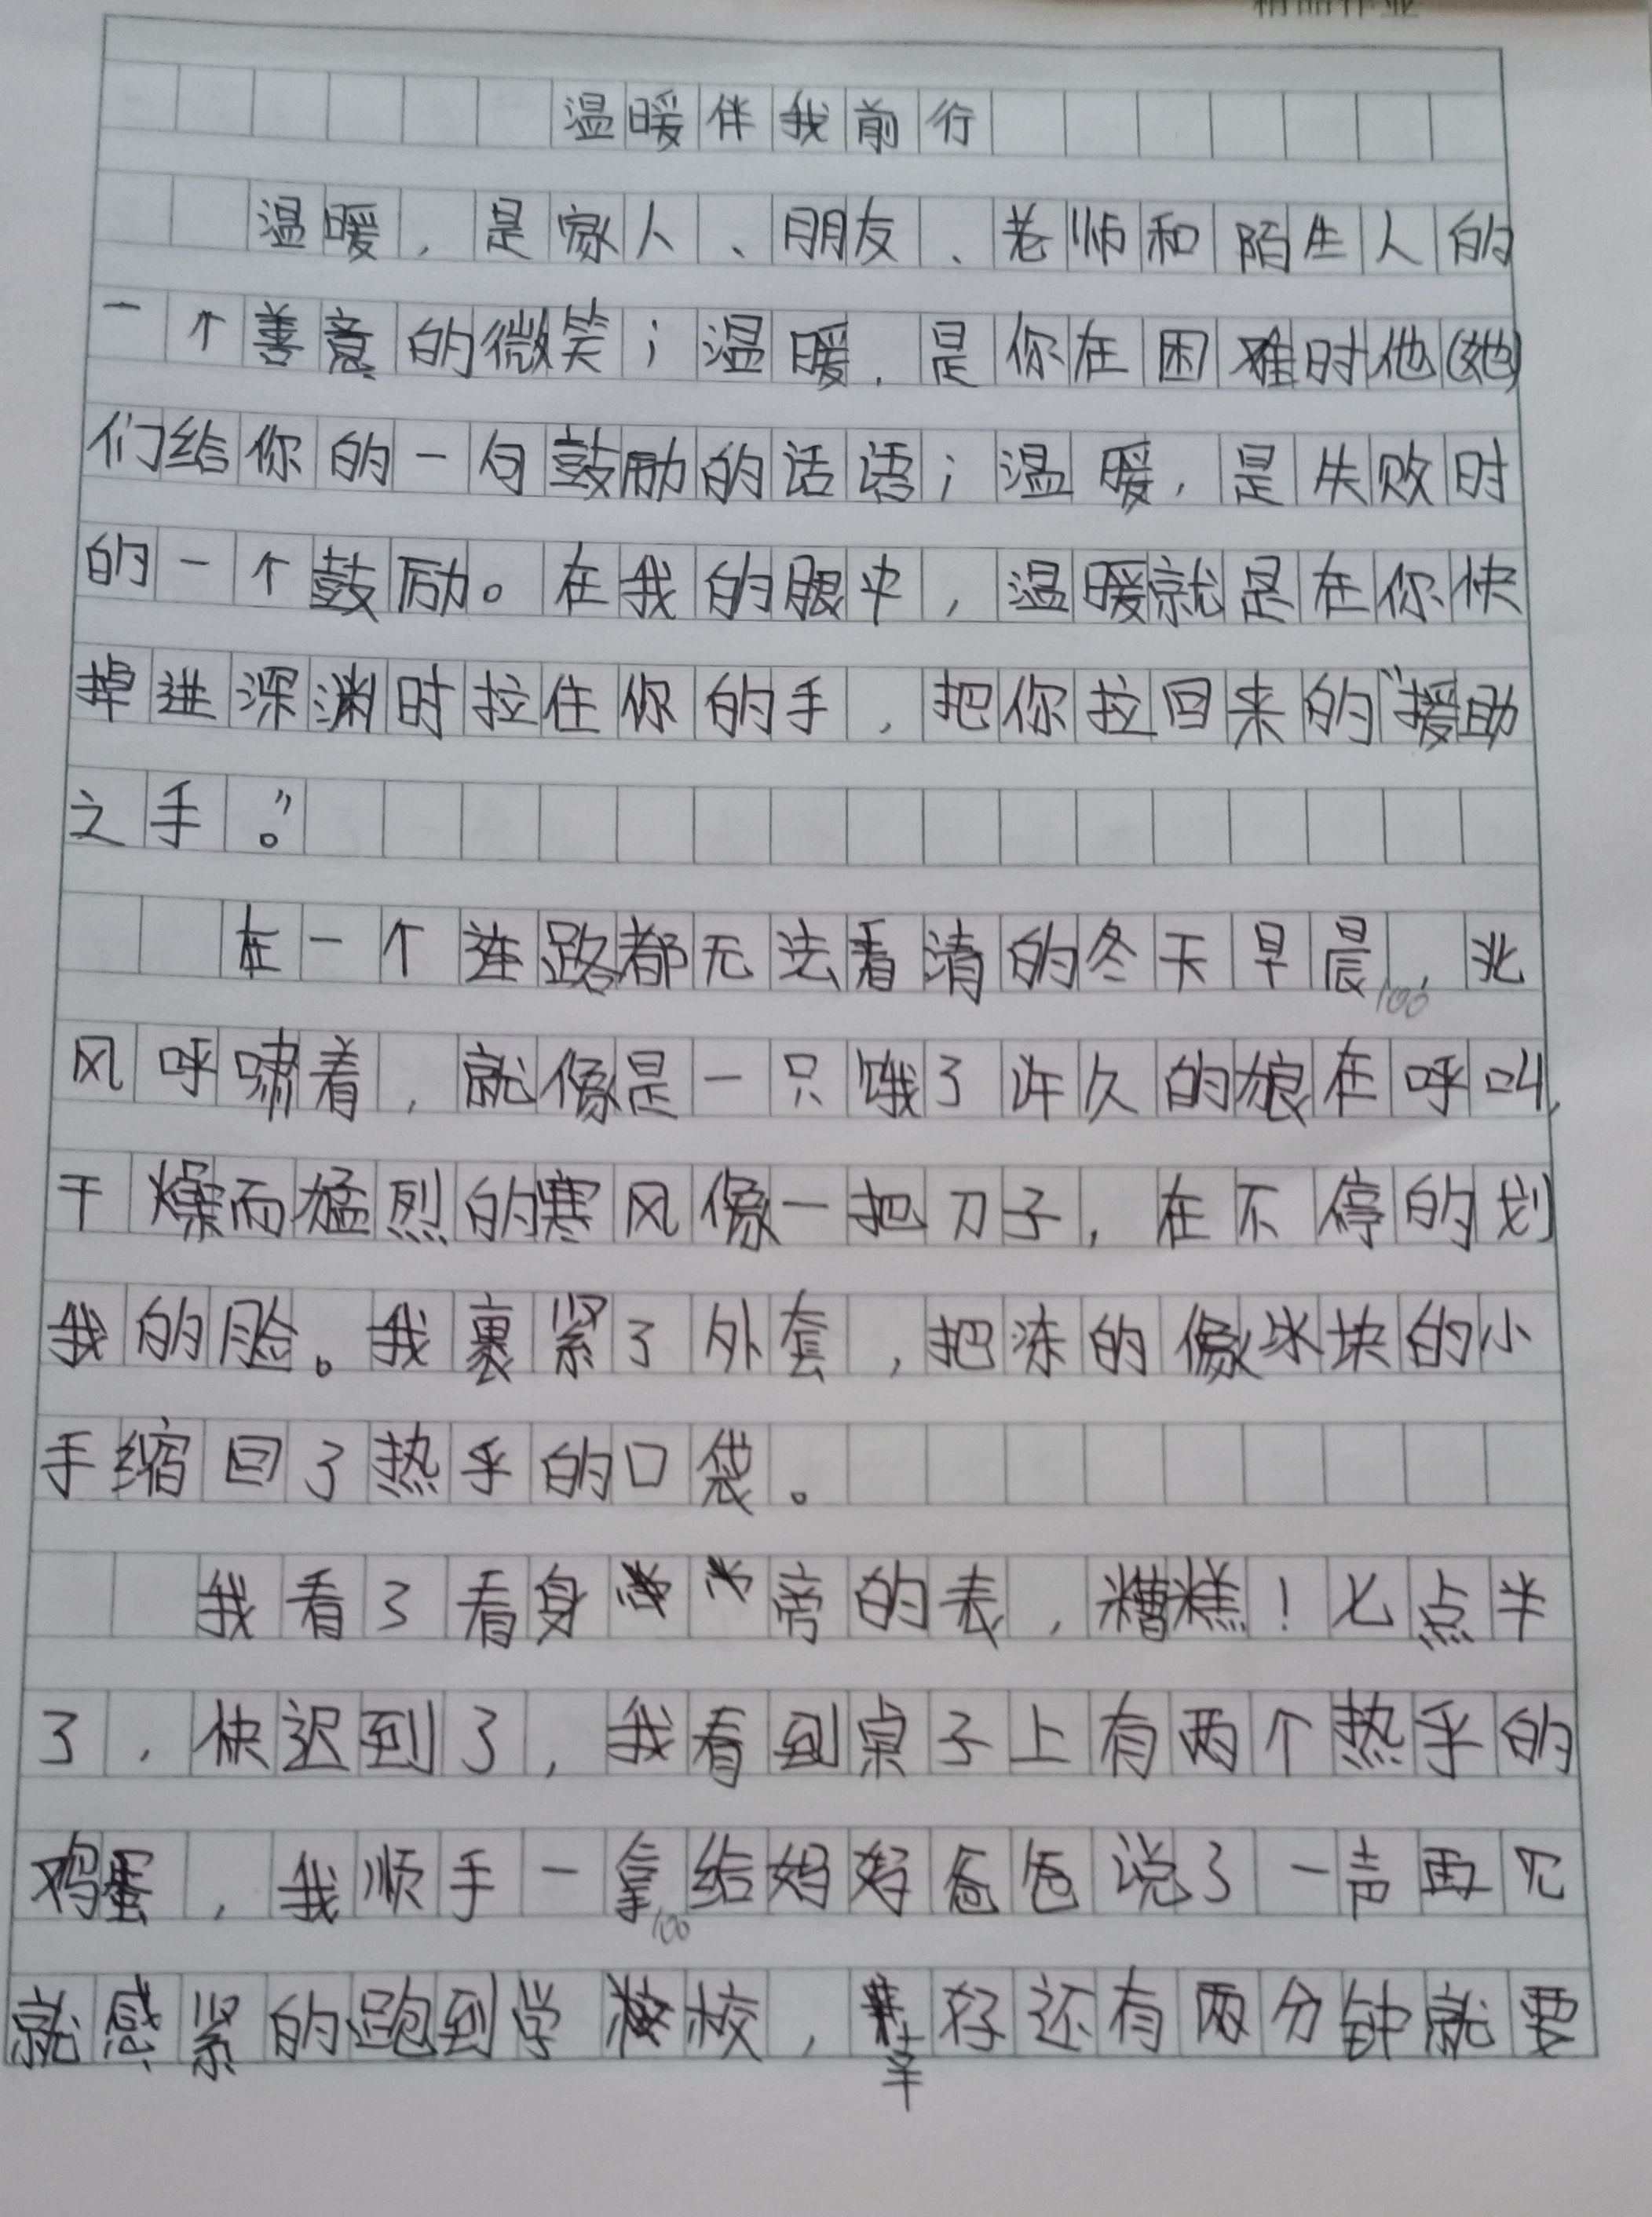 温暖伴我前行
温暖，是家人、朋友、老师和陌生人的
一个善意的微笑；温暖，是你在困难时他(她)
们给你的一句鼓励的话语；温暖，是失败时
的一个鼓励。在我的眼中，温暖就是在你快
掉进深渊时拉住你的手，把你拉回来的“援助
之手。”
在一个连路都无法看清的冬天早晨，北
100
风呼啸着，就像是一只饿了许久的狼在呼叫，
干燥而猛烈的寒风像一把刀子，在不停的划
我的脸。我裹紧了外套，把冻的像冰块的小
手缩回了热乎的口袋。
我看了看身旁的表，糟糕！七点半
了，快迟到了，我看到桌子上有两个热乎的
鸡蛋，我顺手一拿给妈妈爸爸说了一声再见
100
就感紧的跑到学校，幸好还有两分钟就要